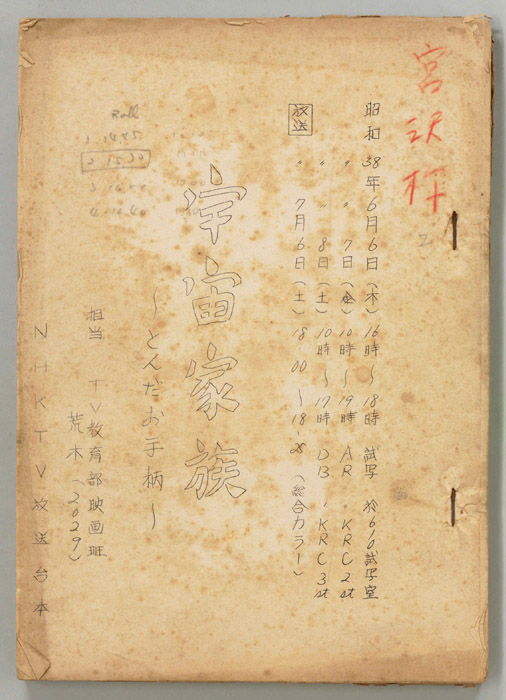 宮沢様
昭和38年6月6日(木)16時〜18時 試写 於610試写室
〃 〃 7日(金)10時〜19時 AR 〃 KRC2st
〃 8日(土)10時〜17時 DB 〃 KRC3st
放送 7月6日(土)18.00〜18.28(総合カラー)
宇宙家族
〜とんだお手柄〜
担当 TV教育部映画班
荒木(2029)
NHKTV放送台本
Roll
2 15.30